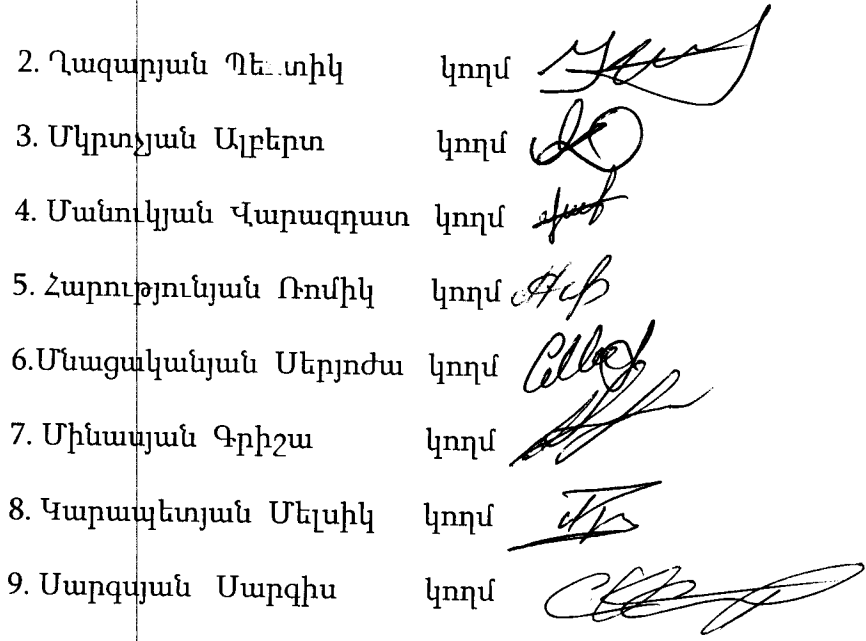 2. Ղազարյան կողմ
3. Մկրտչյան Ալբերտ կողմ
4. Մանուկյան Վարազդատ կողմ
5. Հարությունյան Ռոմիկ կողմ
6.Մնացականյան Սերյոժա կողմ
7. Մինասյան Գրիշա կողմ
8. Կարապետյան Մելսիկ կողմ
9. Սարգսյան Սարգիս կողմ